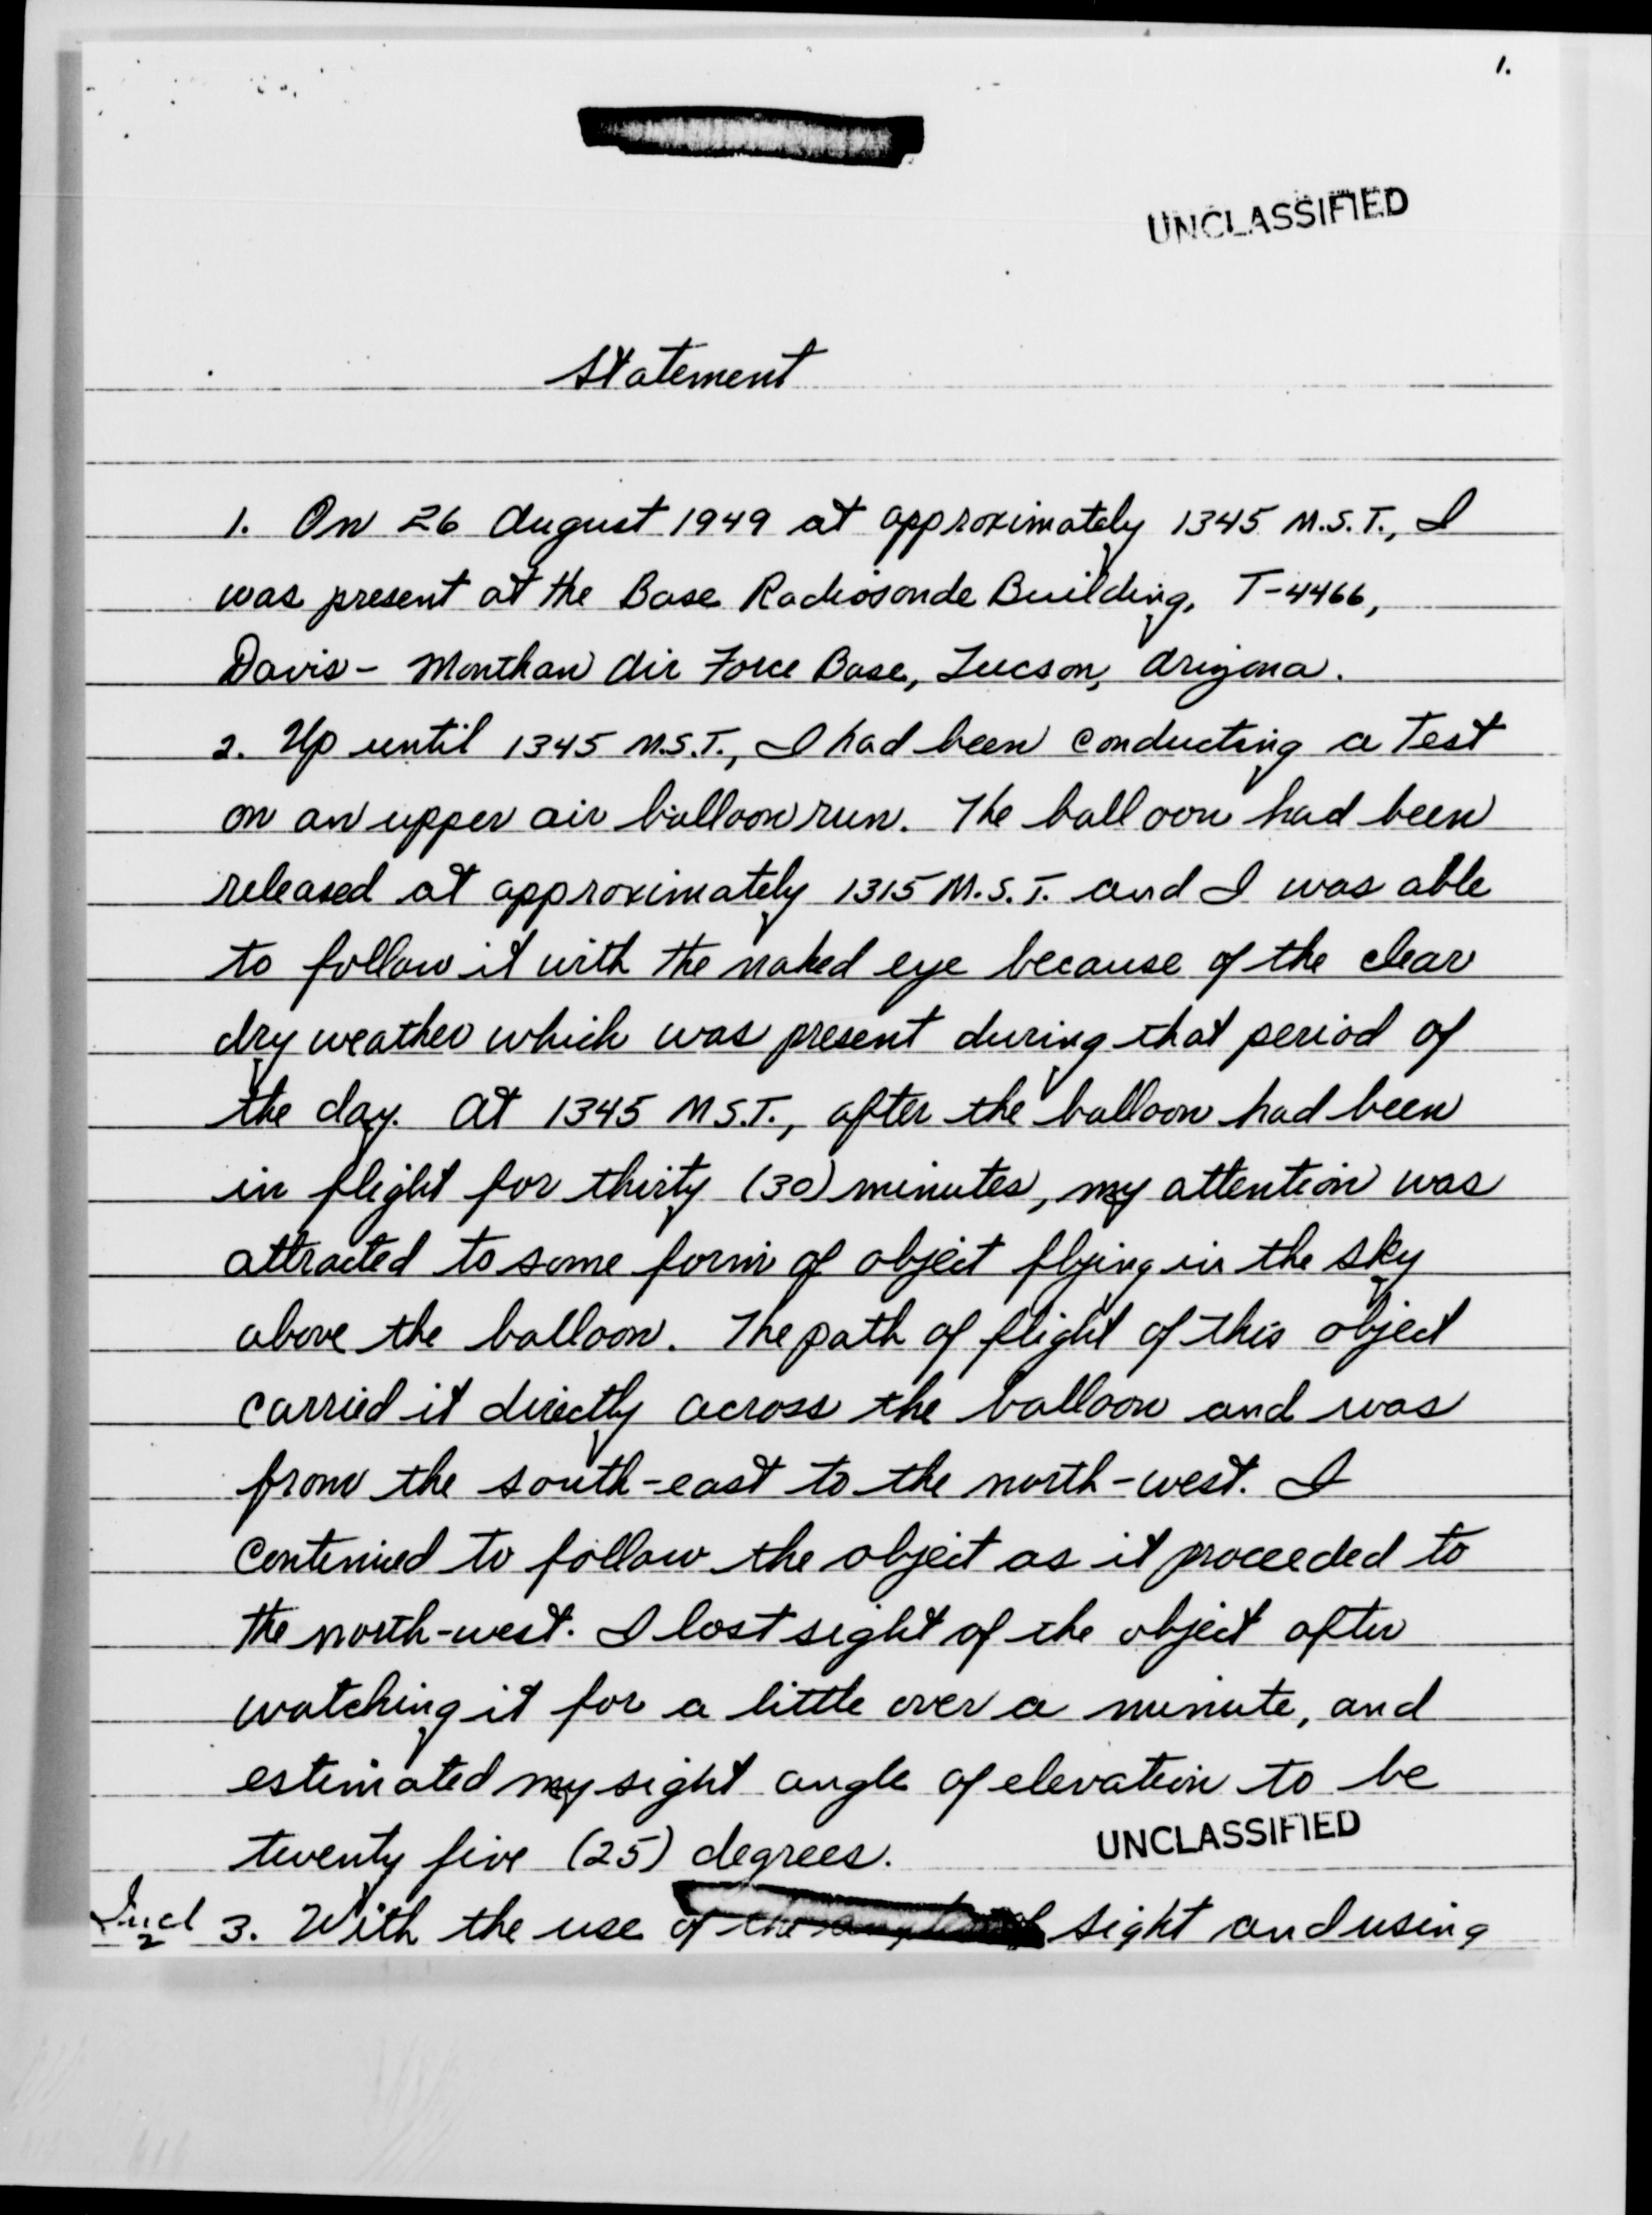 1.
UNCLASSIFIED
Statement
1. On 26 August 1949 at approximately 1345 M.S.T., I
was present at the Base Radiosonde Building, T-4466,
Davis-Monthan Air Force Base, Tucson, Arizona.
2. Up until 1345 M.S.T., I had been conducting a Test
on an upper air balloon run. The balloon had been
released at approximately 1315 M.S.T. and I was able
to follow it with the naked eye because of the clear
dry weather which was present during that period of
the day. At 1345 M.S.T., after the balloon had been
in flight for thirty (30) minutes, my attention was
attracted to some form of object flying in the sky
above the balloon. The path of flight of this object
carried it directly across the balloon and was
from the south-east to the north-west. I
continued to follow the object as it proceeded to
the north-west. I lost sight of the object after
watching it for a little over a minute, and
estimated my sight angle of elevation to be
twenty five (25) degrees.
UNCLASSIFIED
Incl 2
3. With the use of the sight and using